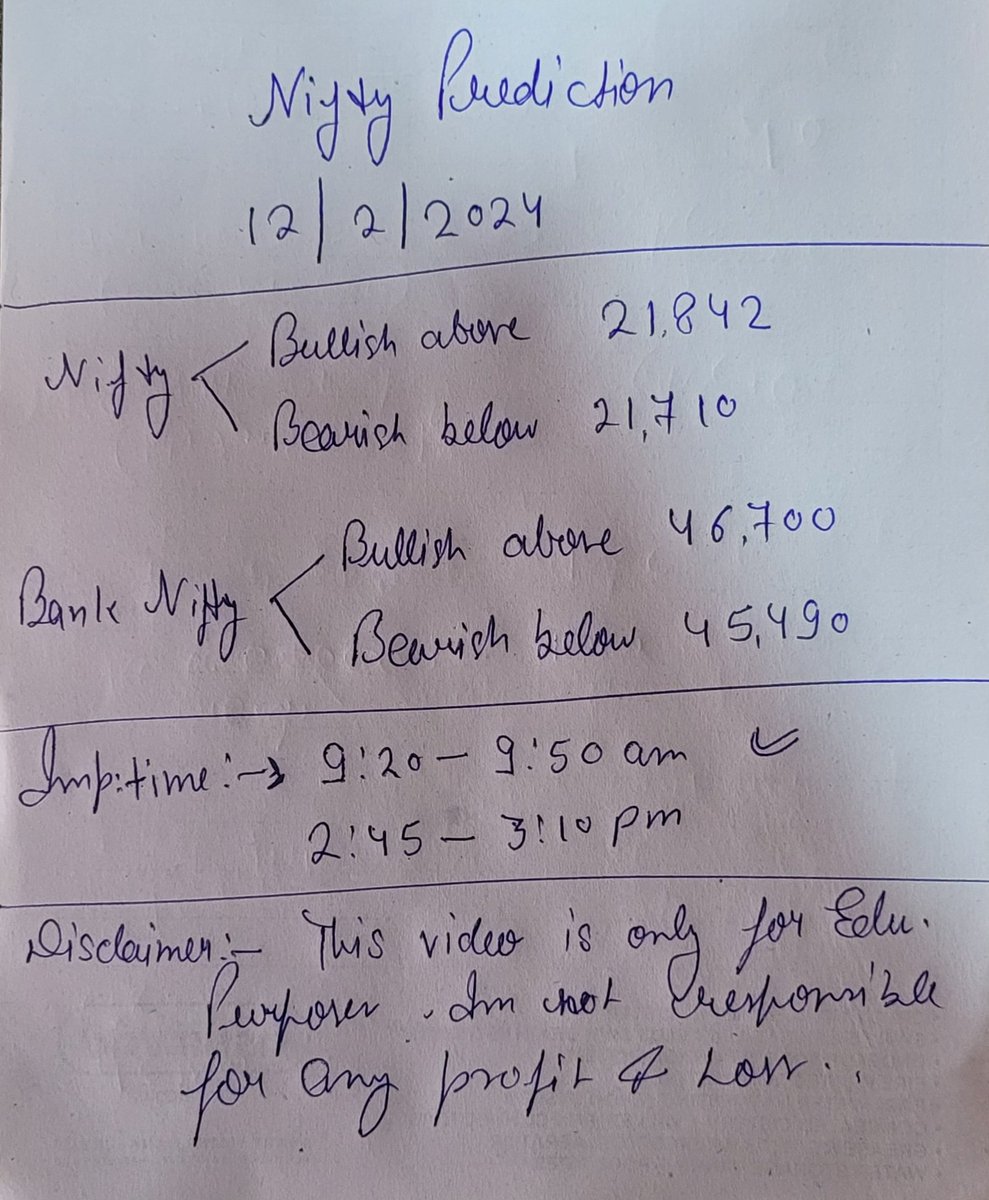 Nifty Prediction
12/2/2024
Nifty < Bullish above 21,842
Bearish below 21,710
Bank Nifty < Bullish above 46,700
Bearish below 45,490
Imp:time:→ 9:20 - 9:50 am
2:45 - 3:10 pm
Disclaimer:- This video is only for Edu.
Purposes. Im not responsible
for any profit & Loss..